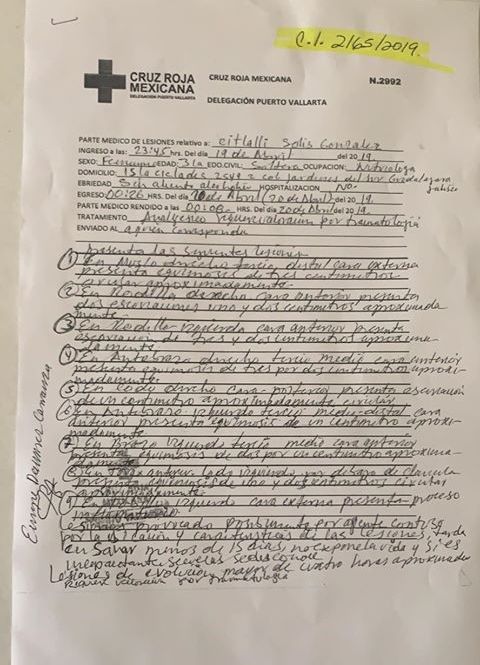 C.I. 2165/2019.
CRUZ ROJA
MEXICANA
DELEGACIÓN PUERTO VALLARTA
CRUZ ROJA MEXICANA
N.2992
DELEGACIÓN PUERTO VALLARTA
PARTE MEDICO DE LESIONES relativo a: Citlalli Solis Gonzalez
INGRESO a las: 23:45 HRS. Del día 19 de Abril del 2019.
SEXO: Femenino EDAD: 31a EDO.CIVIL: Soltera OCUPACION: Nutriologa
DOMICILIO: Isla ciclades 2549 a col jardines del sur Guadalajara
Jalisco
EBRIEDAD Sin aliento alcoholico HOSPITALIZACION No.
EGRESO 00:26 HRS. Del día (20 de Abril) del 2019.
PARTE MEDICO RENDIDO a las 00:08 HRS. Del día 20 de Abril del 2019.
TRATAMIENTO Analgesico requiere valoracion por traumatologia
ENVIADO AL a quien corresponda
presenta las siguientes lesiones
1 En Muslo derecho tercio distal cara externa
presenta equimosis de tres centimetros
circular aproximadamente.
2 En Rodilla derecha cara anterior presenta
dos escoriaciones uno y dos centimetros aproximada
mente.
3 En Rodilla Izquierda cara anterior presenta
escoriacion de tres x dos centimetros aproxima-
damente.
4 En Antebrazo derecho tercio medio cara anterior
presenta equimosis de tres por dos centimetros aproxi-
madamente.
5 En codo derecho cara posterior presenta escoriación
de un centimetro aproximadamente circular.
6 En Antebrazo izquierdo tercio medio-distal cara
anterior presenta equimosis de un centimetro aproxi-
madamente.
7 En Brazo izquierdo tercio medio cara anterior
presenta equimosis de dos por un centimetro aproxima-
damente
8 En Torax anterior lado izquierdo por debajo de clavicula
presenta equimosis de uno x dos centimetros circular
aproximadamente.
9 izquierdo cara externa presenta proceso
inflamatorio
lesiones provocado posiblemente por agente contuso
por la ubicación y caracteristicas de las lesiones, tarda
en sanar menos de 15 dias, no expone la vida y si es
secuelas
Lesiones de evolucion mayor de cuatro horas aproximadas
Requiere valoracion por traumatologia